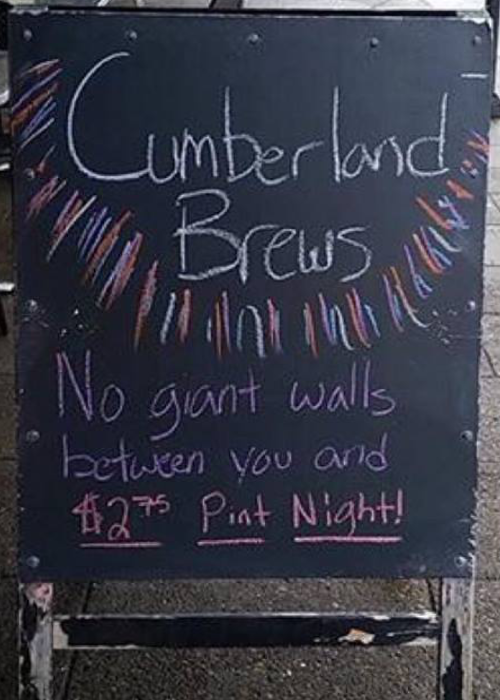 Cumberland
Brews
No giant walls
between you and
$275 Pint Night!